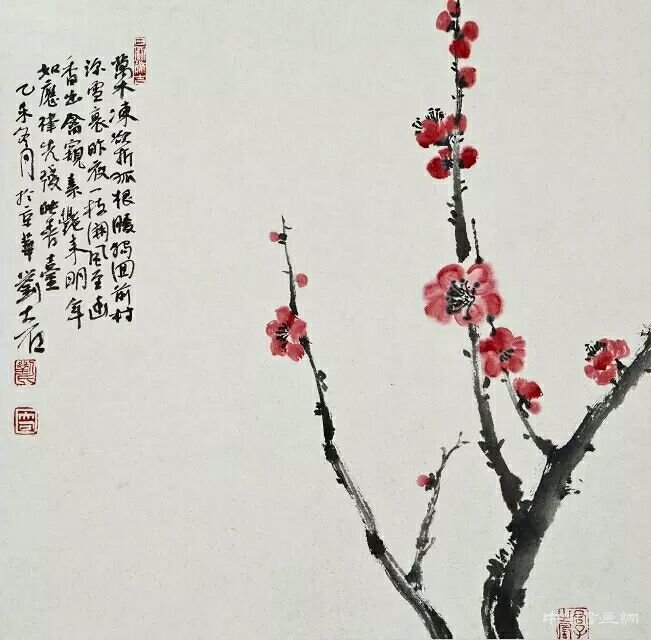 萬木凍欲折孤根暖獨回前村
深雪裏昨夜一枝開風遞幽
香出禽窺素艷來明年
如應律先發映春臺
乙未冬月於京華劉士